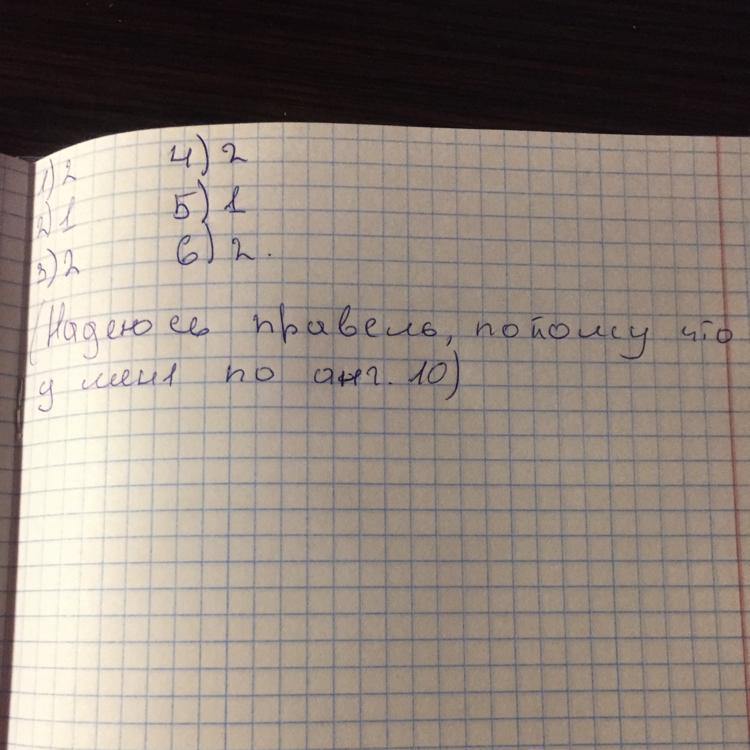 1) 2
2) 1
3) 2
4) 2
5) 1
6) 2.
(Надеюсь правель, потому что
у меня по анг. 10)